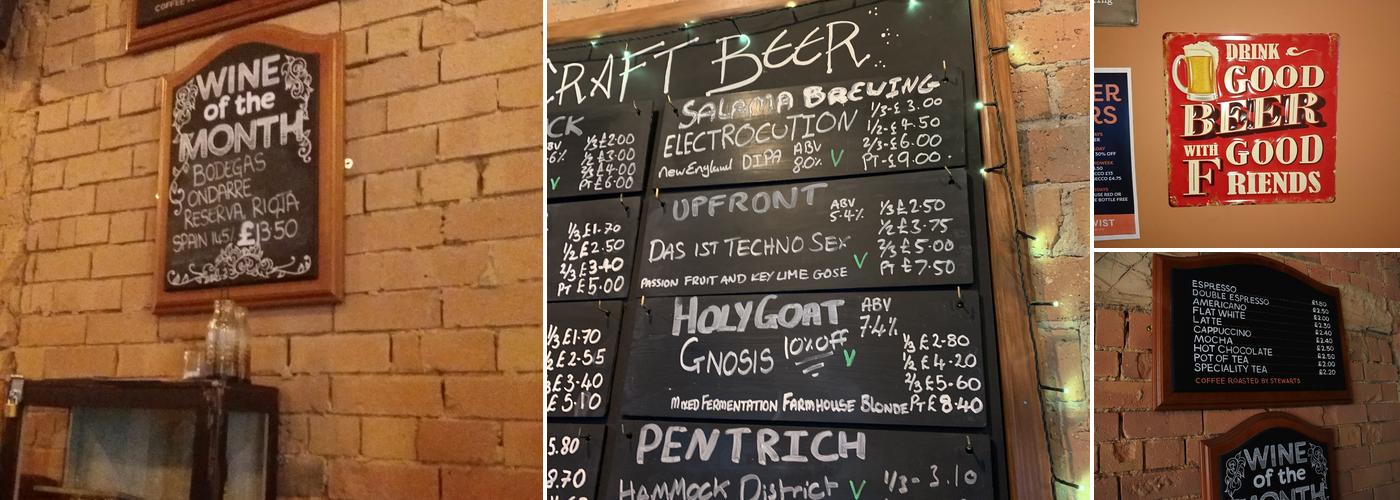 WINE
of the
MONTH
BODEGAS
ONDARRE
RESERVA, RIOJA
SPAIN 14.5/ £13.50
CRAFT BEER
CK
1/3£2.00
1/2 £3.00
2/3£4.00
PT£6.00
SALAMA BREWING
ELECTROCUTION
New England DIPA ABV
8.0% V
1/3-£3.00
1/2-£4.50
2/3-£6.00
PT-£9.00.
1/3£1.70
1/2£2.50
2/3£3.40
PT£5.00
UPFRONT
ABV
5.4%
DAS IST TECHNO SEX
PASSION FRUIT AND KEY LIME GOSE V
1/3£2.50
1/2£3.75
2/3£5.00
PT£7.50
1/3£1.70
£2.55
£3.40
£5.10
HOLY GOAT ABV
7.4%
GNOSIS 10% OFF V
MIXED FERMENTATION FARMHOUSE BLONDE
1/3£2.80
1/2£4.20
2/3£5.60
PT£8.40
5.80
8.70
PENTRICH
HAMMOCK District V 1/3-3.10
DRINK
GOOD
BEER
WITH GOOD
FRIENDS
ER
RS
30% OFF
ECCO £4.75
USE RED OR
BOTTLE FREE
WIST
ESPRESSO £1.80
DOUBLE ESPRESSO £2.50
AMERICANO £2.00
FLAT WHITE £2.30
LATTE £2.40
CAPPUCCINO £2.40
MOCHA £2.50
HOT CHOCOLATE £2.50
POT OF TEA £2.00
SPECIALITY TEA £2.20
COFFEE ROASTED BY STEWARTS
WINE
of the
MONTH